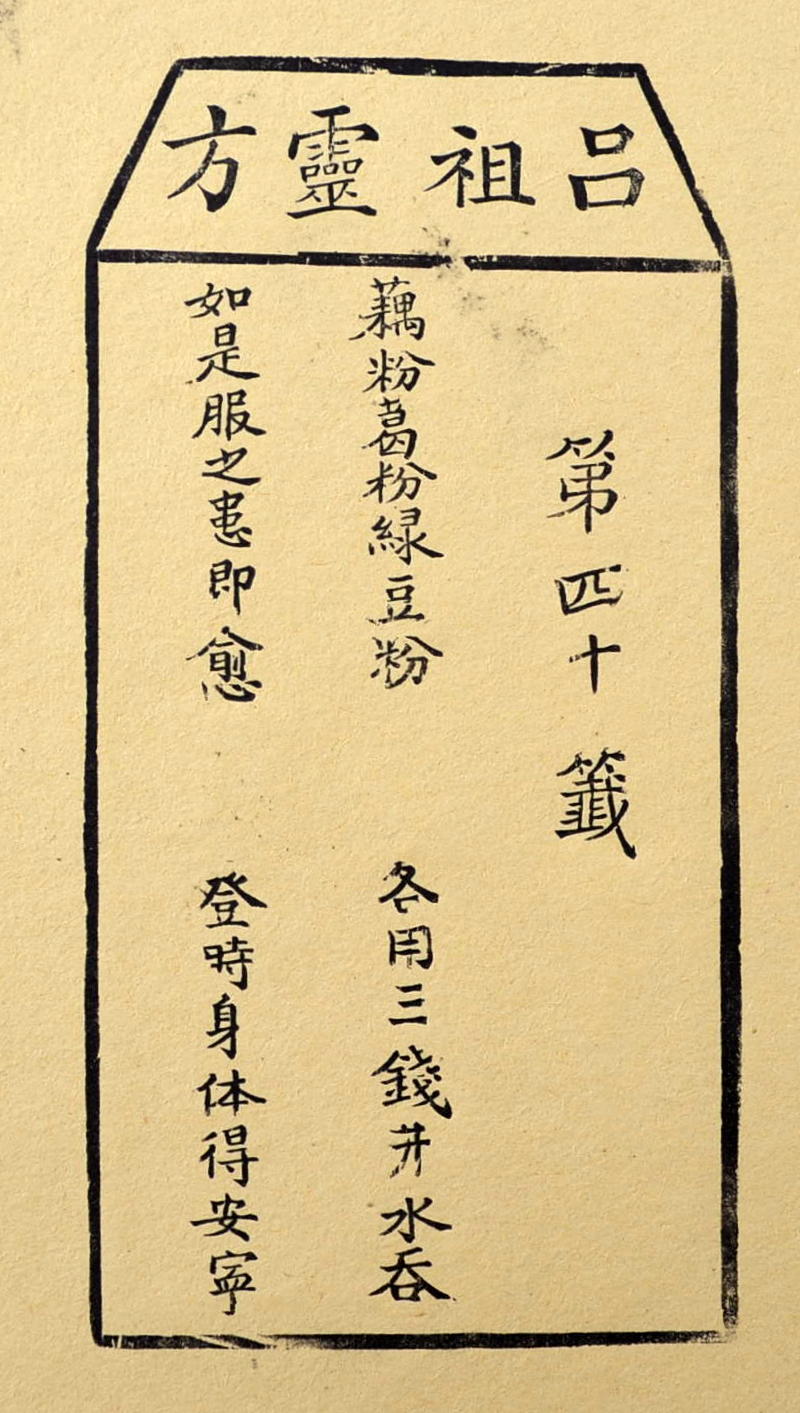 呂祖靈方
第四十籤
藕粉葛粉緑豆粉 各用三錢井水吞
如是服之患即愈 登時身体得安寧